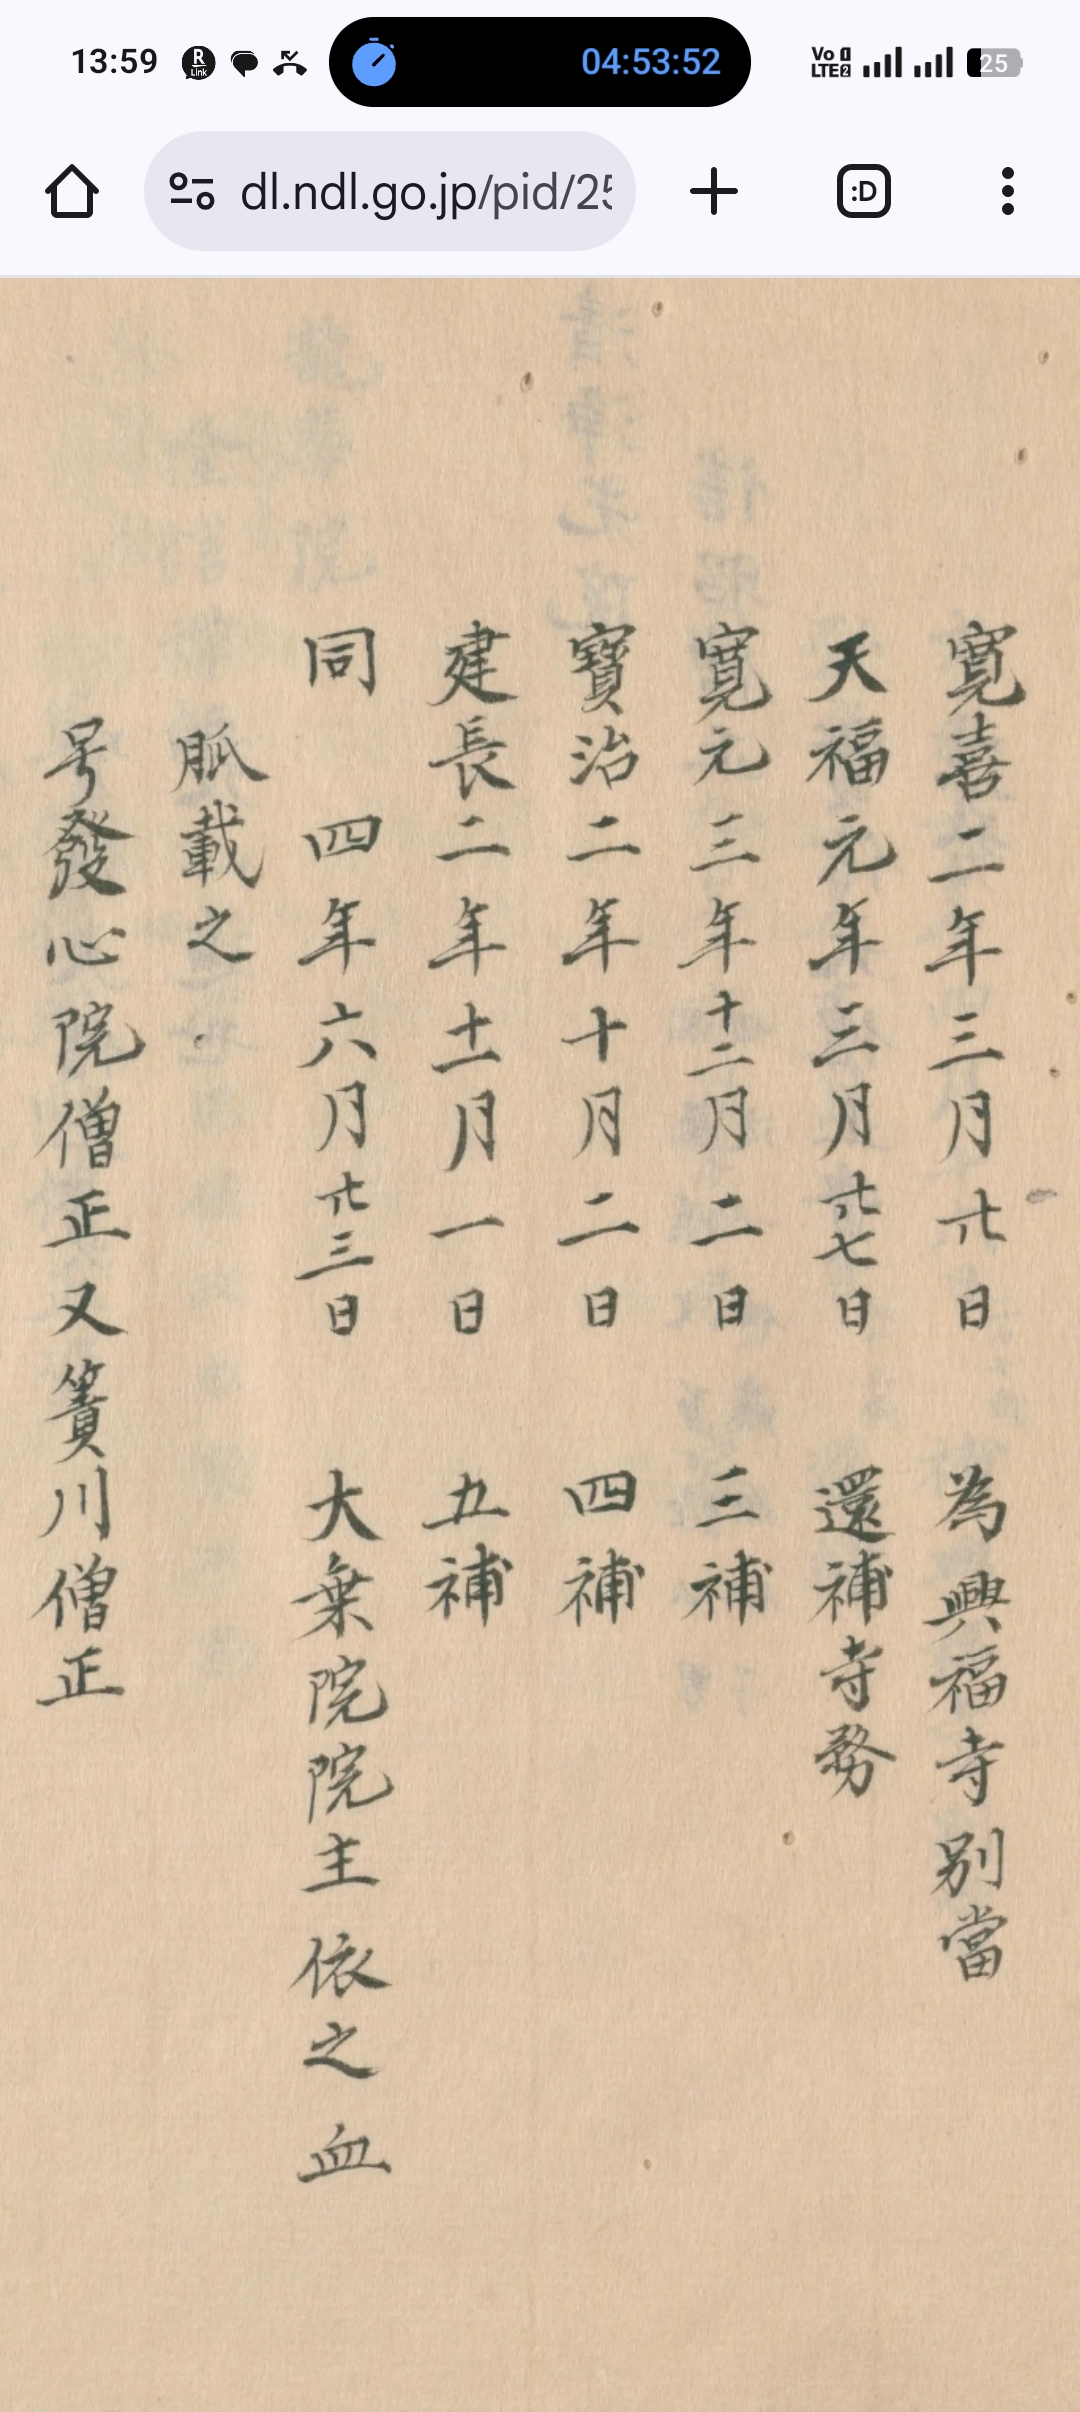 13:59
R Link
04:53:52
Vo LTE 2
25
dl.ndl.go.jp/pid/25
:D
寛喜二年三月廿日 為興福寺別當
天福元年三月廿七日 還補寺務
寛元三年十二月二日 三補
寶治二年十月二日 四補
建長二年十一月一日 五補
同 四年六月廿三日 大乗院院主依之血
脈載之
号發心院僧正又簀川僧正